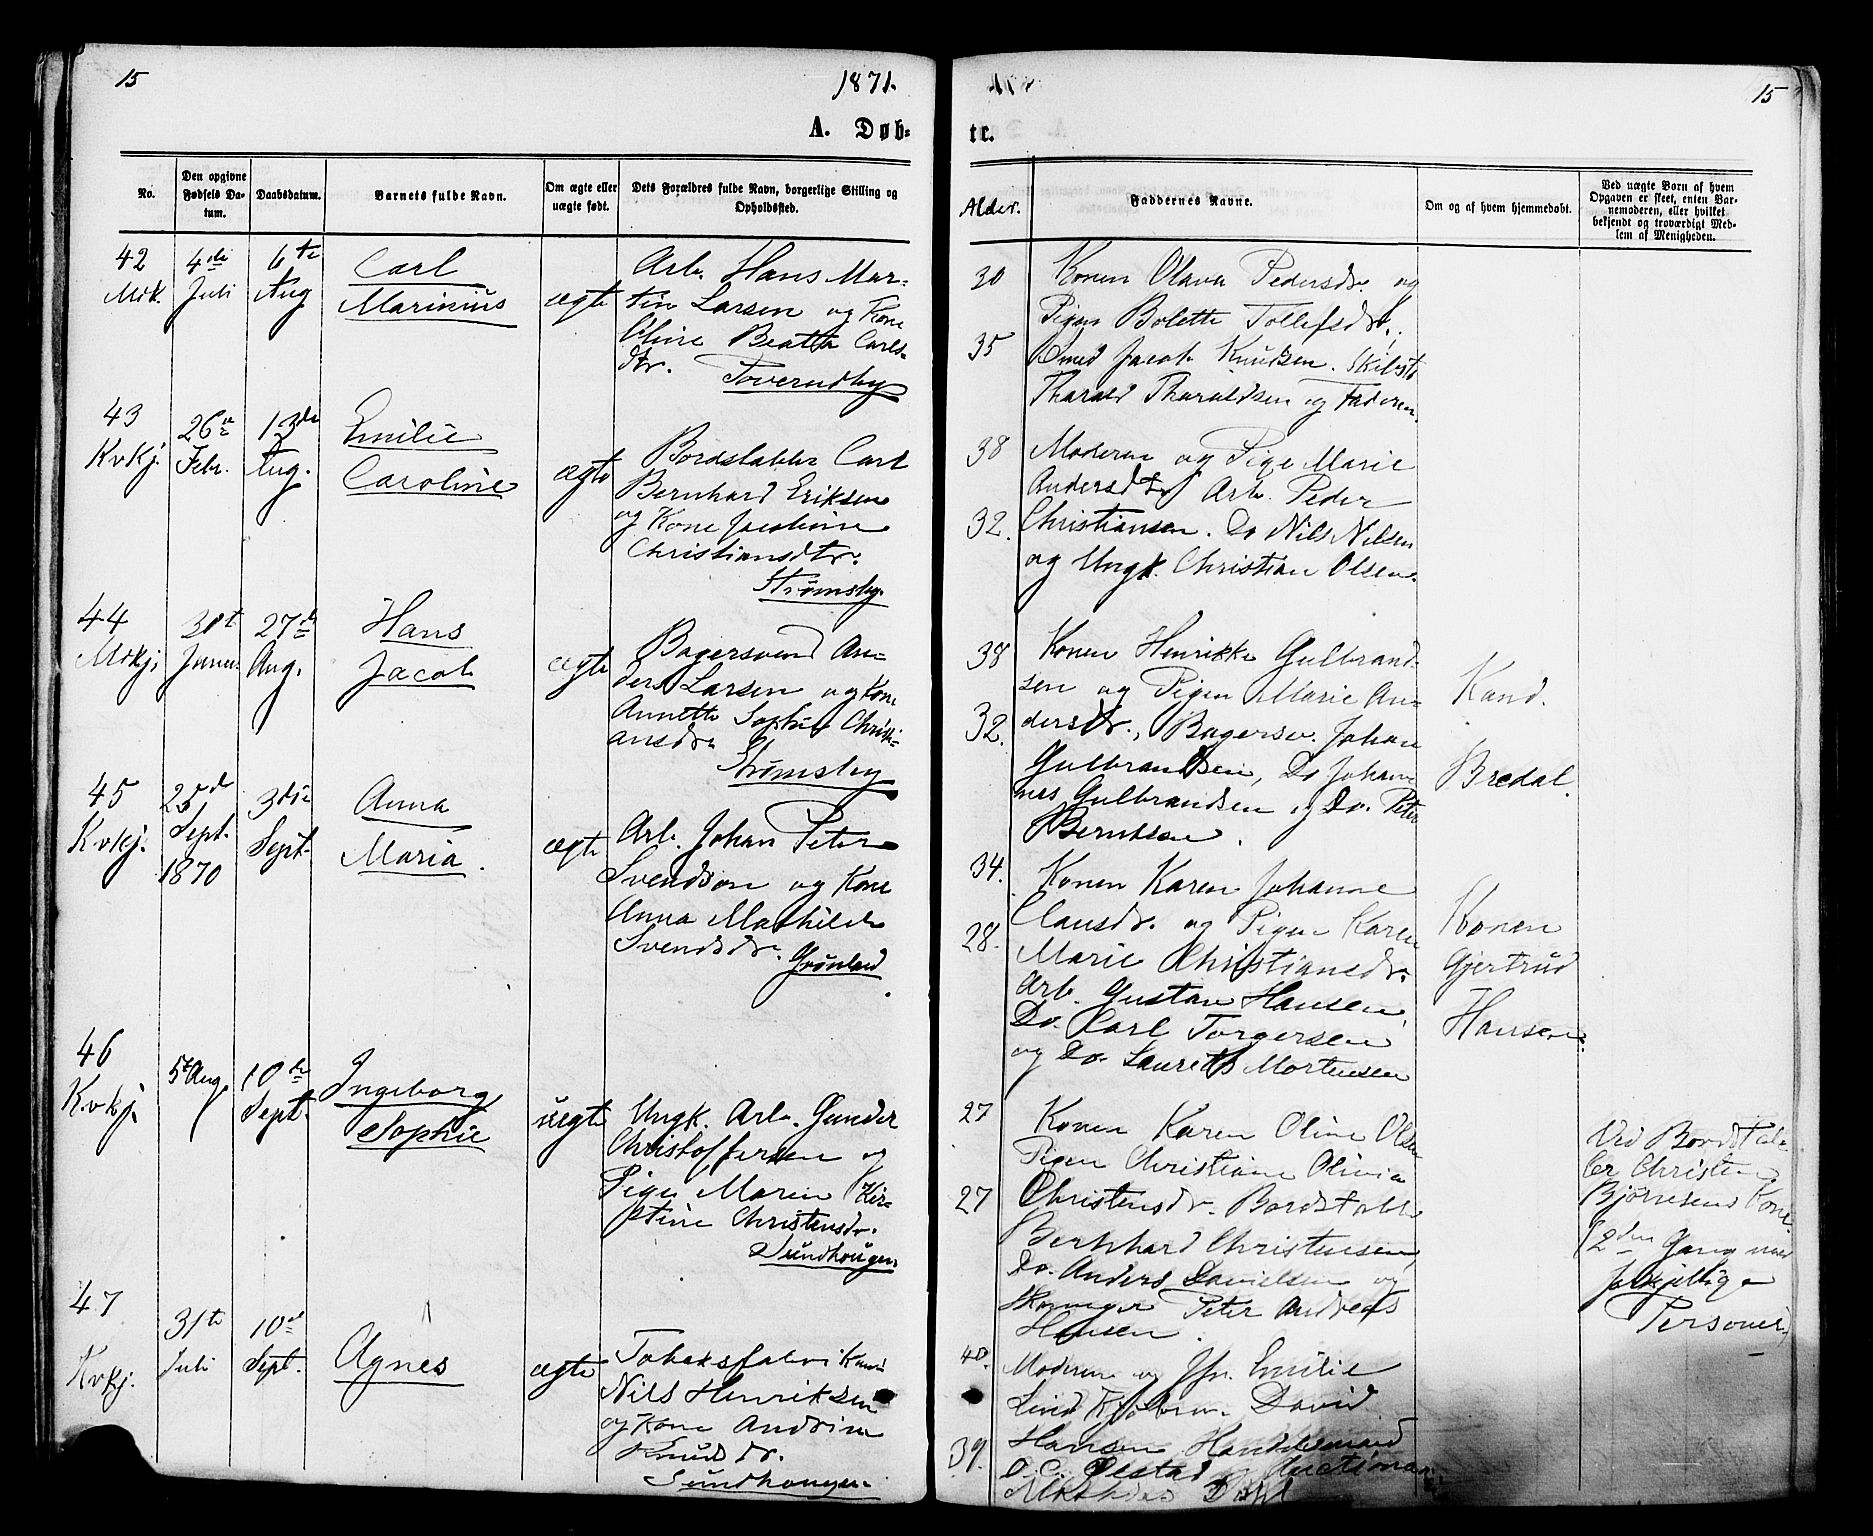 15
1871.
A. Døb-
No.
Den opgivne Fødsels Da-tum.
Daabsdatum.
Barnets fulde Navn.
Om ægte eller uægte født.
Dets Forældres fulde Navn, borgerlige Stilling og Opholdssted.
42
Mdk.
4de
Juli
6te
Aug
Carl
Marinius
ægte
Arb. Hans Mar-
tin Larsen og Kone
Oline Beatha Carls-
dtr.
Toverudby
43
Kvkj.
26e
Febr.
13de
Aug.
Emilie
Caroline
ægte
Bordstabler Carl
Bernhard Eriksen
og Kone Jacobine
Christiansdtr.
Strømsby.
44
Mdkj.
31t
27de
Aug.
Hans
Jacob
ægte
Bagersvend An-
ders Larsen og Kone
Annette Sophie Christi-
ansdr.
Strømsby
45
Kvkj.
25de
Sept.
1870
3die
Sept.
Anna
Maria.
ægte
Arb. Johan Peter
Svendsen og Kone
Anna Mathilde
Svendsdr.
Grønland
46
Kvkj.
5t Aug
10de
Sept.
Ingeborg
Sophie
uægte
Ungk. Arb. Gunder
Christoffersen og
Pige Maren Kir-
stine Christensdr.
Sundhougen
47
Kvkj.
31te
Juli
10de
Sept.
Agnes
ægte
Tobaksfabrik
Nils Henriksen
og Kone Andrine
Knudsdr.
Sundhougen
15
te.
Alder.
Faddernes Navne.
Om og af hvem hjemmedøbt.
Ved uægte Børn af hvem
Opgaven er skeet, enten Bar-
nemoderen, eller hvilket
bekjendt og troværdigt Med-
lem af Menigheden.
30
35
Konen Olava Pedersdr. og
Pigen Bolette Tollefsdr.,
Smed Jacob Knudsen.
Tharald Tharaldsen og Faderen.
38
32.
Moderen og Pige Marie
Andersdtr Arb. Peder
Christiansen. Do Nils Nilsen
og Ungk. Christian Olsen.
38
32.
Konen Henrikke Gulbrand-
sen og Pigen Marie An-
dersdr., Bagersv. Johan
Gulbrandsen, Do Johan-
nes Gulbrandsen og Do. Peter
Berntsen.
Kand.
Bredal.
34.
28.
Konen Karen Johanne
Clausdr. og Pigen Karen
Marie Christiansdr.
Arb. Gustav Hansen,
Do. Carl Torgersen
og Do. Laurits Mortensen
Konen
Gjertrud
Hansen.
27
27
Konen Karen Oline Olsen
Pigen Christiane Olivia
Christensdr. Bordstabler
Bernhard Christensen,
Do. Anders Davidsen og
Peter Andreas
Hansen.
Ved Bordstab-
ler Christen
Bjørnesens Kone.
(2den Gang med
forskjellige
Personer)
40.
39.
Moderen og Jfr. Emilie
Lind David
Hansen Handelsmand
O. C. Ølstad
Mathias Dahl